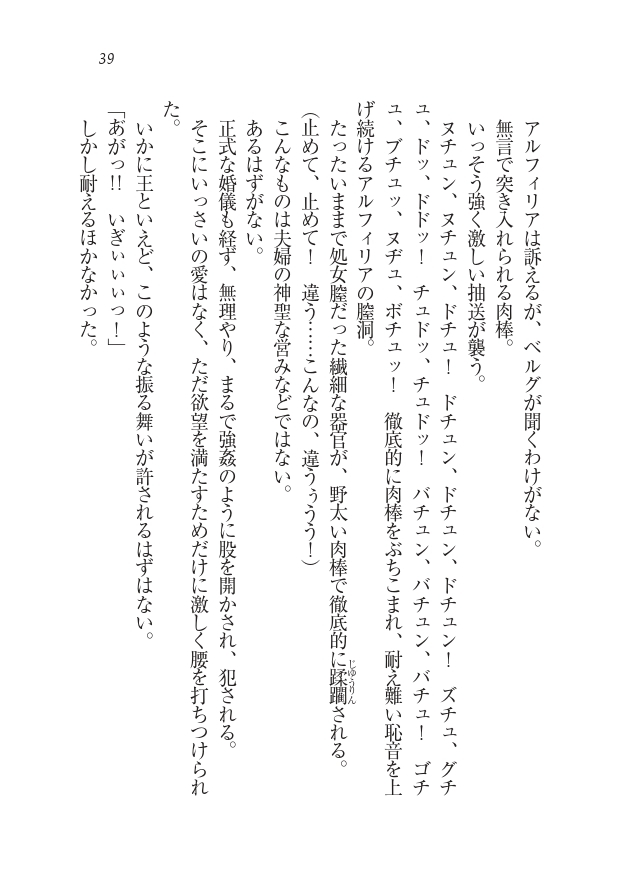 39
アルフィリアは訴えるが、ベルグが聞くわけがない。
無言で突き入れられる肉棒。
いっそう強く激しい抽送が襲う。
ヌチュン、ヌチュン、ドチュ！　ドチュン、ドチュン、ドチュン！　ズチュ、グチ
ュ、ドッ、ドドッ！　チュドッ、チュドッ！　バチュン、バチュン、バチュ！　ゴチ
ュ、ブチュッ、ヌヂュ、ボチュッ！　徹底的に肉棒をぶちこまれ、耐え難い恥音を上
げ続けるアルフィリアの膣洞。
たったいままで処女膣だった繊細な器官が、野太い肉棒で徹底的に蹂躙じゅうりんされる。
（止めて、止めて！　違う……こんなの、違うぅうう！）
こんなものは夫婦の神聖な営みなどではない。
あるはずがない。
正式な婚儀も経ず、無理やり、まるで強姦のように股を開かされ、犯される。
そこにいっさいの愛はなく、ただ欲望を満たすためだけに激しく腰を打ちつけられ
た。
いかに王といえど、このような振る舞いが許されるはずはない。
「あがっ!!　いぎぃぃぃっ！」
しかし耐えるほかなかった。